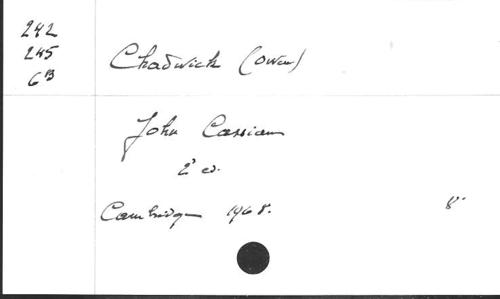 242
245
6B
Chadwick (Owen)
John Cassian
2° ed.
Cambridge 1968.
8°